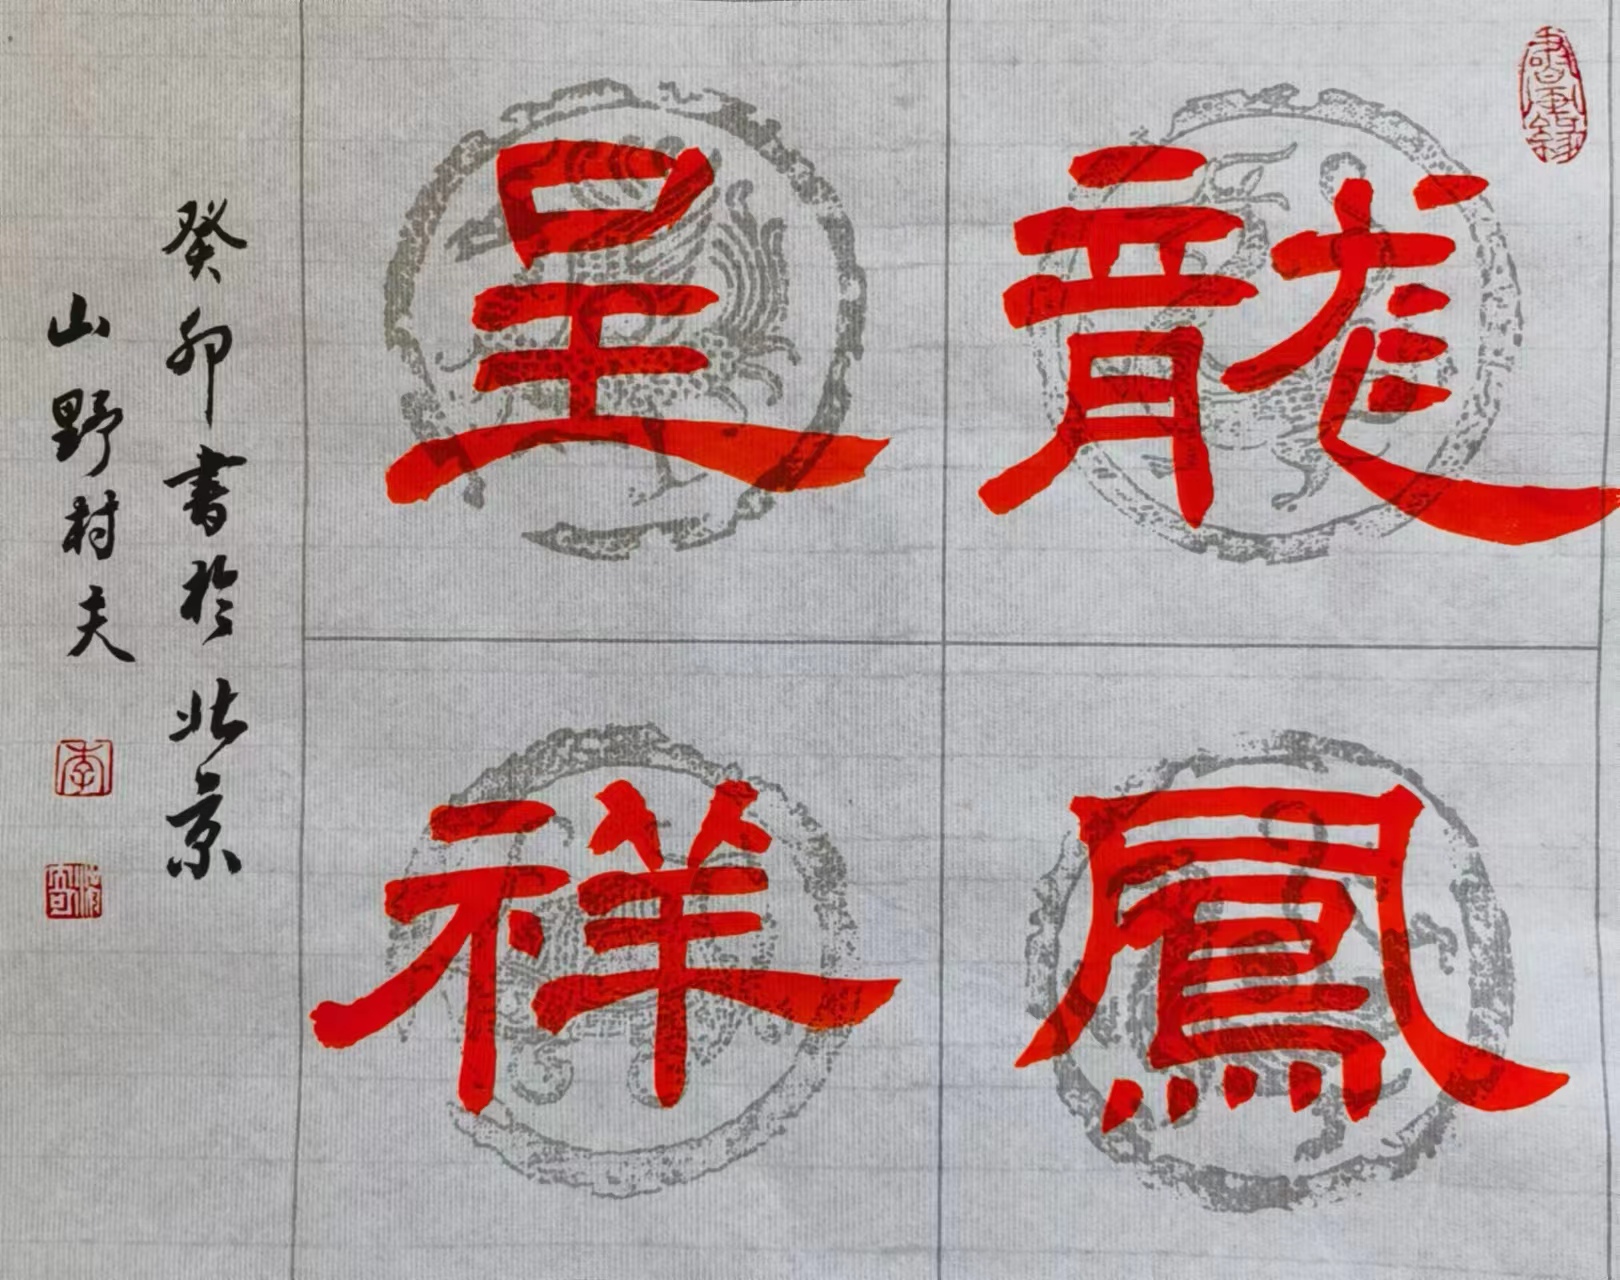 龍鳳
呈祥
癸卯書於北京
山野村夫
李